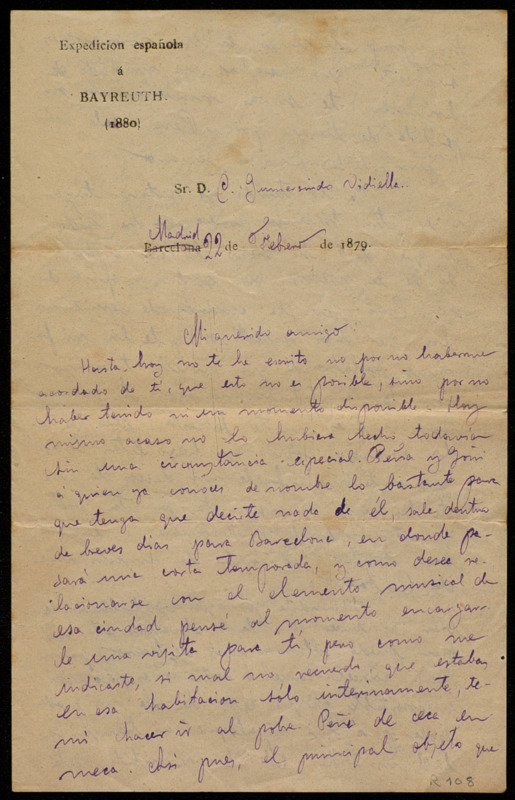 Expedicion española
á
BAYREUTH.
(1880)
Sr. D. C. Gumersindo Vidiella.
Madrid
Barcelona 22 de Febrero de 1879.
Mi querido amigo:
Hasta hoy no te he escrito no por no haberme
acordado de tí, que esto no es posible, sino por no
haber tenido ni un momento disponible. Hoy
mismo acaso no lo hubiera hecho todavía
sin una circunstancia especial. Peña y Goñi
á quien ya conoces de nombre lo bastante para
que tenga que decirte nada de él, sale dentro
de breves dias para Barcelona, en donde pa-
sará una corta temporada, y como desea re-
lacionarse con el elemento musical de
esa ciudad pensé al momento encargar-
le una visita para tí, pero como me
indicaste, si mal no recuerdo, que estabas
en esa habitacion sólo interinamente, te-
mí hacer ir al pobre Peña de ceca en
meca. Asi pues, el principal objeto que
R 108